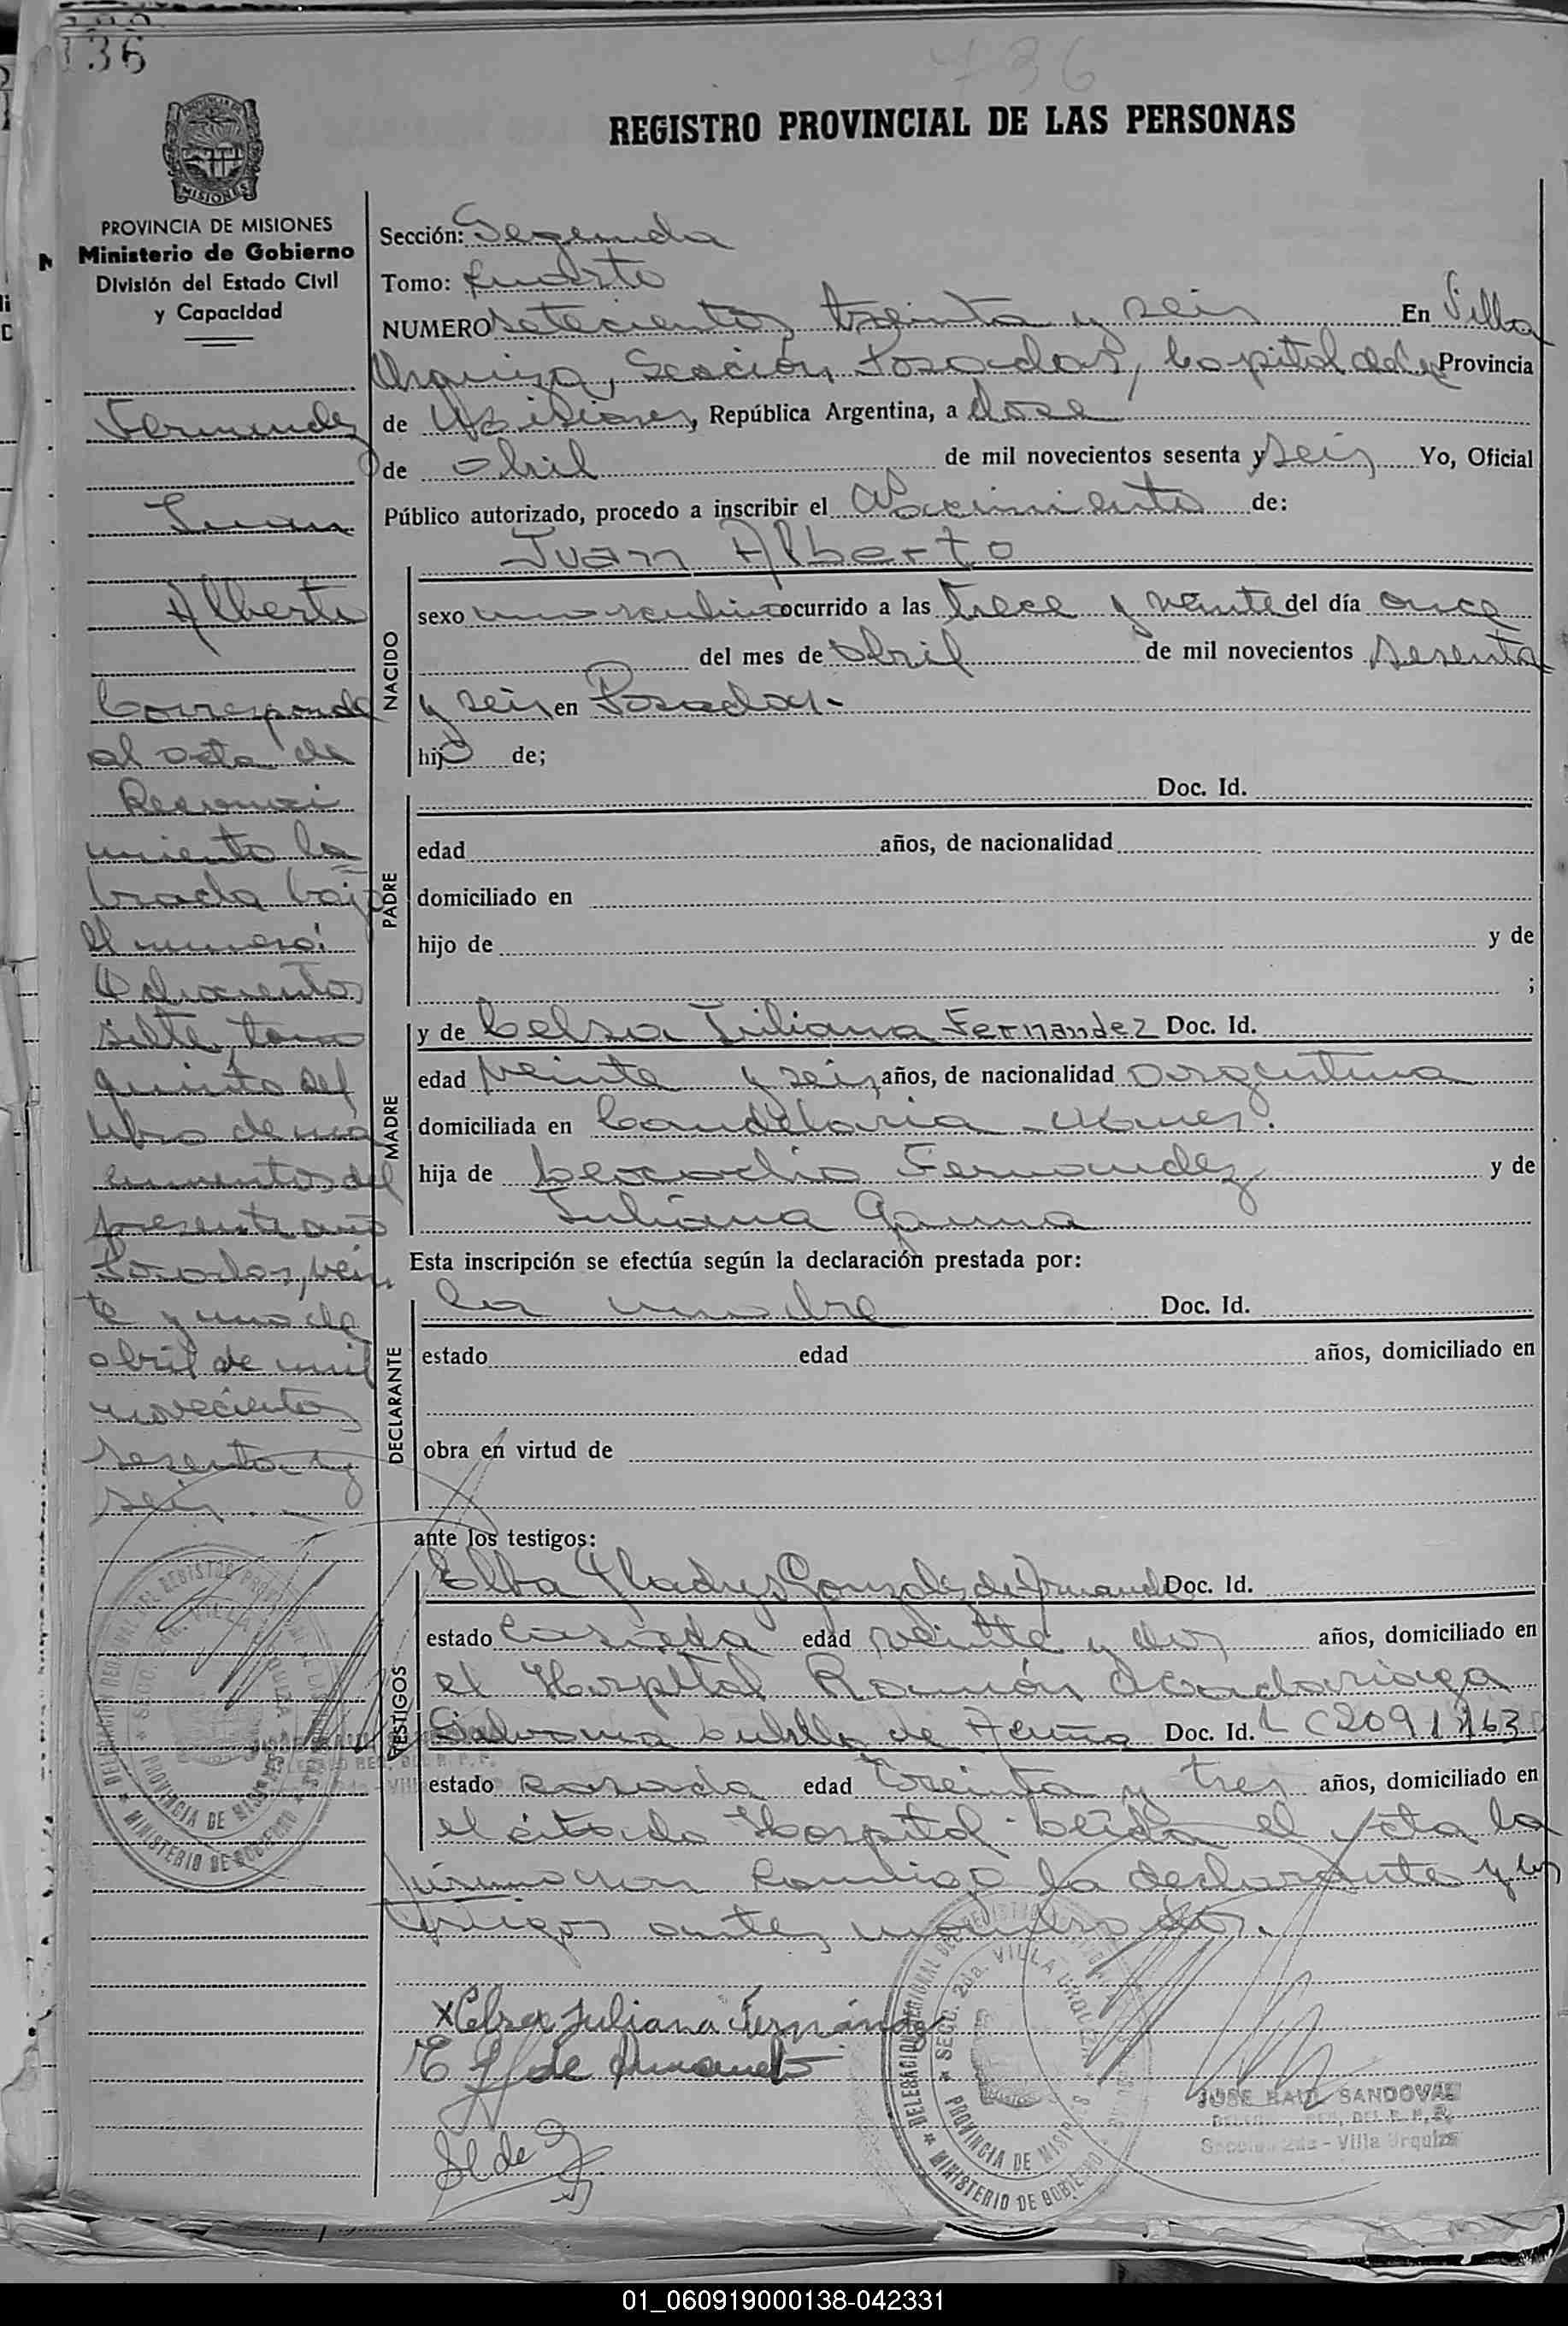 136
736
REGISTRO PROVINCIAL DE LAS PERSONAS
MISIONES
PROVINCIA DE MISIONES
Ministerio de Gobierno
División del Estado Civil
y Capacidad
Fernandez
Juan
Alberto
Corresponde
al acta de
Reconoci
miento la
brada bajo
el numero:
Ochocientos
siete, tomo
quinto del
libro de naci
mientos del
presente año
Posadas, vein
te y uno de
abril de mil
novecientos
sesenta y
seis.
Sección: Segunda
Tomo: Cuarto
NUMERO setecientos treinta y seis En Villa
Urquiza, Sección Posadas, Capital de la Provincia
de Misiones, República Argentina, a doce
de abril de mil novecientos sesenta y seis Yo, Oficial
Público autorizado, procedo a inscribir el Nacimiento de:
Juan Alberto
NACIDO
sexo masculino ocurrido a las trece y veinte del día once
del mes de Abril de mil novecientos sesenta
y seis en Posadas.-
hijo de;
PADRE
Doc. Id.
edad años, de nacionalidad
domiciliado en
hijo de y de
;
MADRE
y de Celsa Juliana Fernandez Doc. Id.
edad veinte y seis años, de nacionalidad argentina
domiciliada en Candelaria - Mnes.
hija de Leocadio Fernandez y de
Juliana Gauna
Esta inscripción se efectúa según la declaración prestada por:
DECLARANTE
la madre Doc. Id.
estado edad años, domiciliado en
obra en virtud de
ante los testigos:
TESTIGOS
Elba Gladys Gonzalez de Doc. Id.
estado casada edad veinte y dos años, domiciliado en
el Hospital Ramón Madariaga
de Acuña Doc. Id. L C 2091763
estado casada edad treinta y tres años, domiciliado en
el citado Hospital. Leída el acta la
firman conmigo la declarante y los
testigos antes mencionados.
x Celsa Juliana Fernández
DELEGACION REGIONAL DEL REGISTRO PROVINCIAL DE LAS PERSONAS
SECC. 2da. VILLA URQUIZA
PROVINCIA DE MISIONES
MINISTERIO DE GOBIERNO
JOSE RAUL SANDOVAL
DELEGADO REG. DEL R. P. P.
Sección 2da - Villa Urquiza
01_060919000138-042331